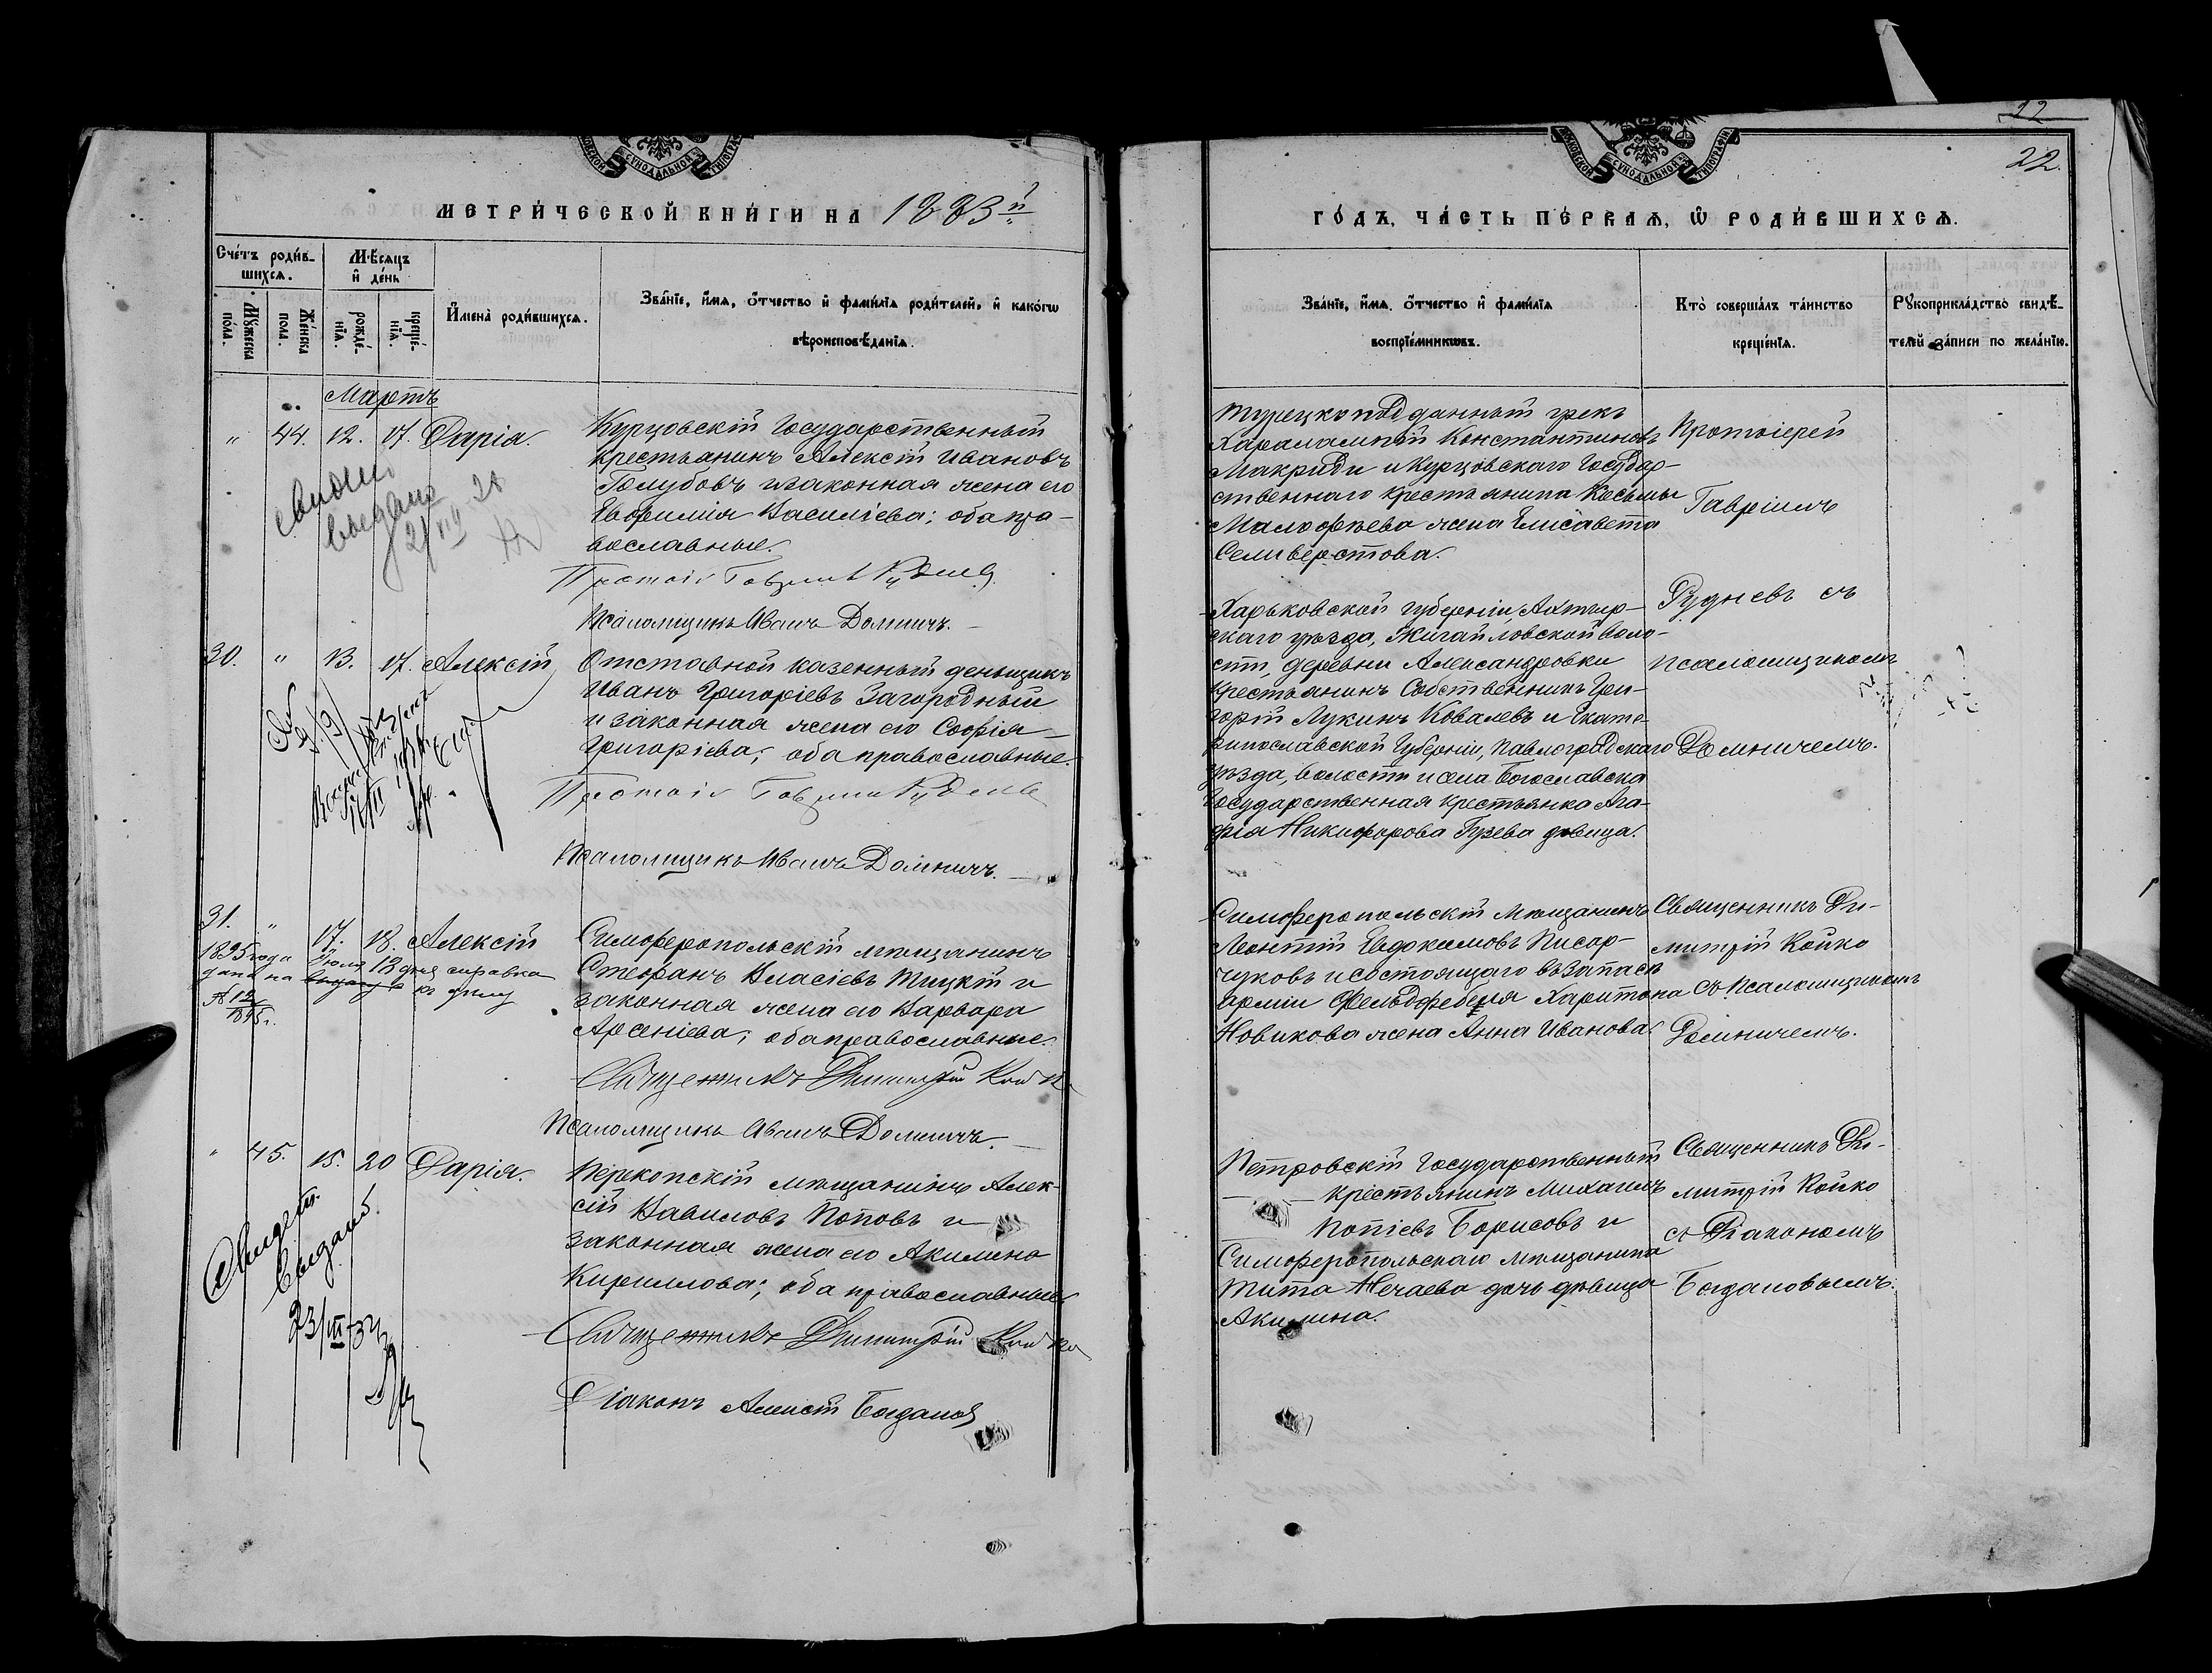 22
22.
МЕТРИ́ЧЕСКОЙ КНИ́ГИ НА 1883й
ГО́ДЪ, ЧА́СТЬ ПЕ́РВАЯ, Ѡ РОДИ́ВШИХСЯ.
Сче́тъ роди́в-
шихся.
Мꙋ́жеска
по́ла.
Же́нска
по́ла.
Мѣ́сяцъ
и де́нь
рожде́-
нїя.
креще́-
нїя.
И҆мена̀ роди́вшихся.
Зва́нїе, и҆́мя, ѻ҆́тчество и҆ фами́лїя роди́телей, и҆ како́гѡ
вѣроисповѣ́данїя.
Зва́нїе, и҆́мя, ѻ҆́тчество и҆ фами́лїя
воспрїе́мникѡвъ.
Кто̀ соверша́лъ та́инство
креще́нїя.
Рꙋкоприкла́дство свидѣ́-
телей за́писи по жела́нїю.
Мартъ
" 44. 12. 17. Дарія.
Курцовскій Государственный
крестьянинъ Алексій Ивановъ
Голубовъ и законная жена его
Евфимія Васильева; оба пра-
вославные.
Псаломщикъ Иванъ Доминичъ.
Турецко подданный грекъ
Харалампій Константиновъ
Макриди и Курцовскаго Государ-
ственнаго крестьянина Косьмы
Малофѣева жена Елисавета
Селиверстова.
Протоіерей
Гавріилъ
Рудневъ съ
псаломщикомъ
Доминичемъ.
выдано
30. " 13. 17. Алексій
Отставной казенный деньщикъ
Иванъ Григоріевъ Загородный
и законная жена его Софія
Григоріева; оба православные.
Псаломщикъ Иванъ Доминичъ.
Харьковской губерніи, Ахтыр-
скаго уѣзда, Жигайловской воло-
сти, деревни Александровки
крестьянинъ Собственникъ Гри-
горій Лукинъ Ковалевъ и Екате-
ринославской Губерніи, Павлоградскаго
уѣзда, волости и села Богославска
Государственная крестьянка Ага-
фія Никифорова Гузева девица.
31. " 17. 18. Алексій
1895 года Іюля 13 дня справка
дана на къ дѣлу
Симферопольскій мѣщанинъ
Стефанъ Власіевъ Тицкій и
законная жена его Варвара
Арсеніева; оба православные.
Священникъ Димитрій Койко
Псаломщикъ Иванъ Доминичъ.
Симферопольскій Мѣщанинъ
Леонтій Евдокимовъ Писар-
чуковъ и состоящаго въ запасѣ
арміи Фельдфебеля Харитона
Новикова жена Анна Иванова.
Священникъ Ди-
митрій Койко
съ Псаломщикомъ
Доминичемъ.
" 45. 15. 20 Дарія.
Перекопскій мѣщанинъ Алек-
сій Вавиловъ Поповъ и
законная жена его Акилина
Кириллова; оба православные.
Священникъ Димитрій Койко
Діаконъ Алексій Богдановъ
Петровскій Государственный
крестьянинъ Михаилъ
Борисовъ и
Симферопольскаго мѣщанина
Тита Нечаева дочь дѣвица
Акилина.
Священникъ Ди-
митрій Койко
съ Діакономъ
Богдановымъ.
выдано